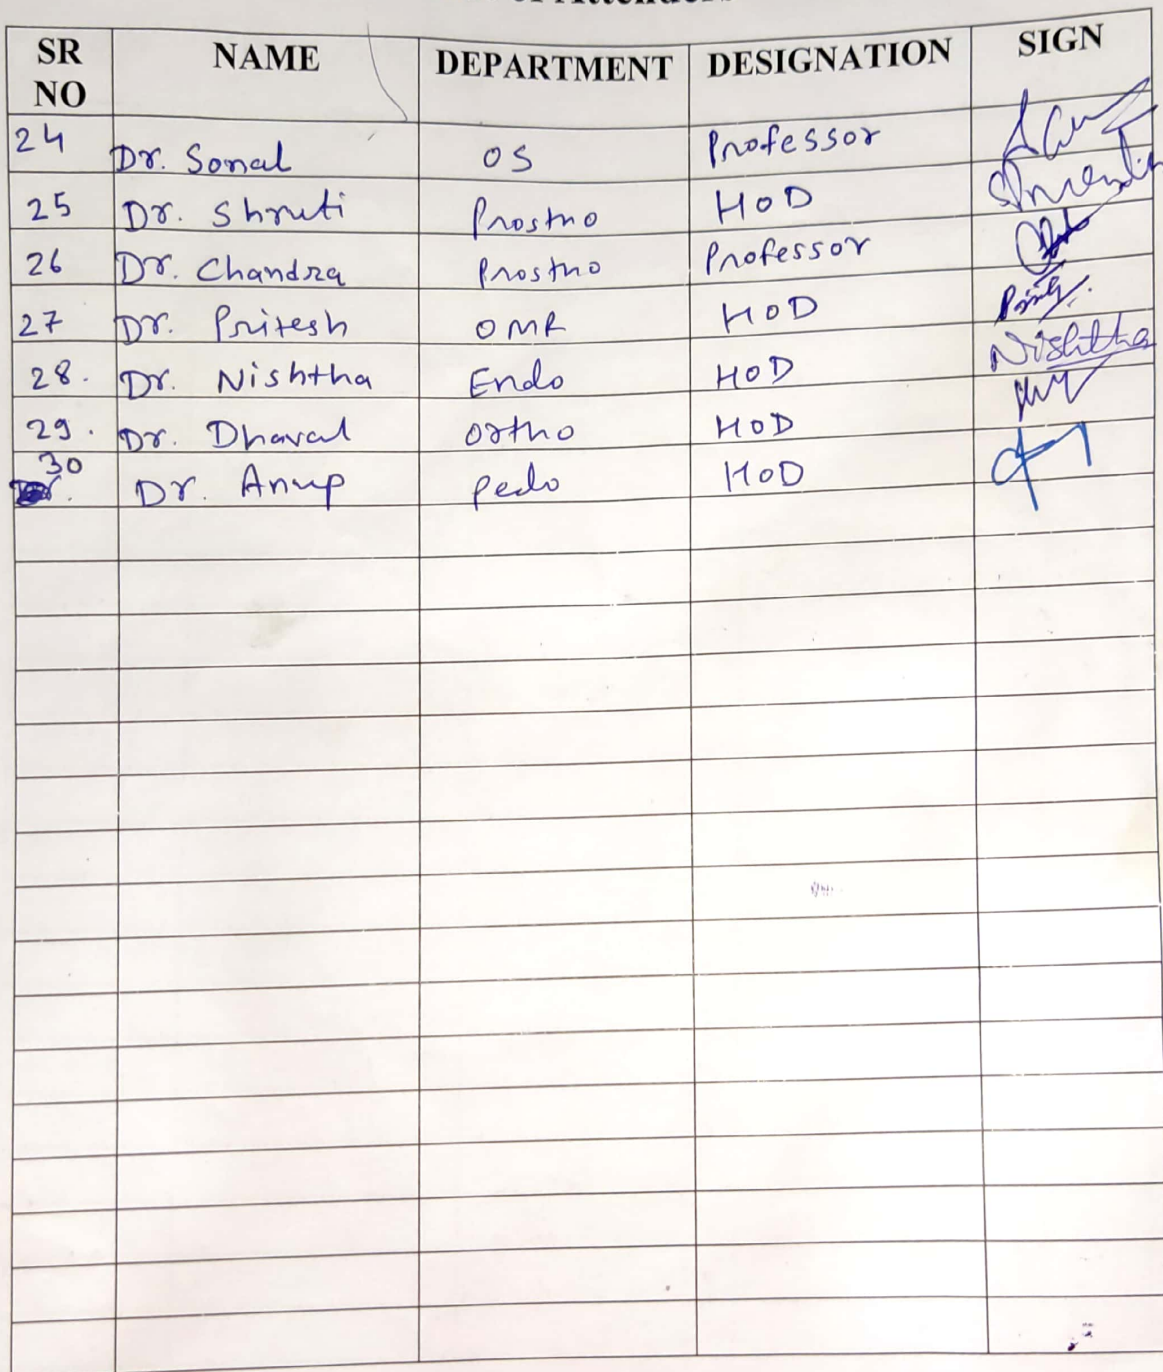 SR NO NAME DEPARTMENT DESIGNATION SIGN
24 Dr. Sonal OS Professor
25 Dr. Shruti Prostho HOD
26 Dr. Chandra Prostho Professor
27 Dr. Pritesh OMR HOD
28. Dr. Nishtha Endo HOD Nishtha
29. Dr. Dhaval Ortho HOD
30 Dr. Anup Pedo HOD